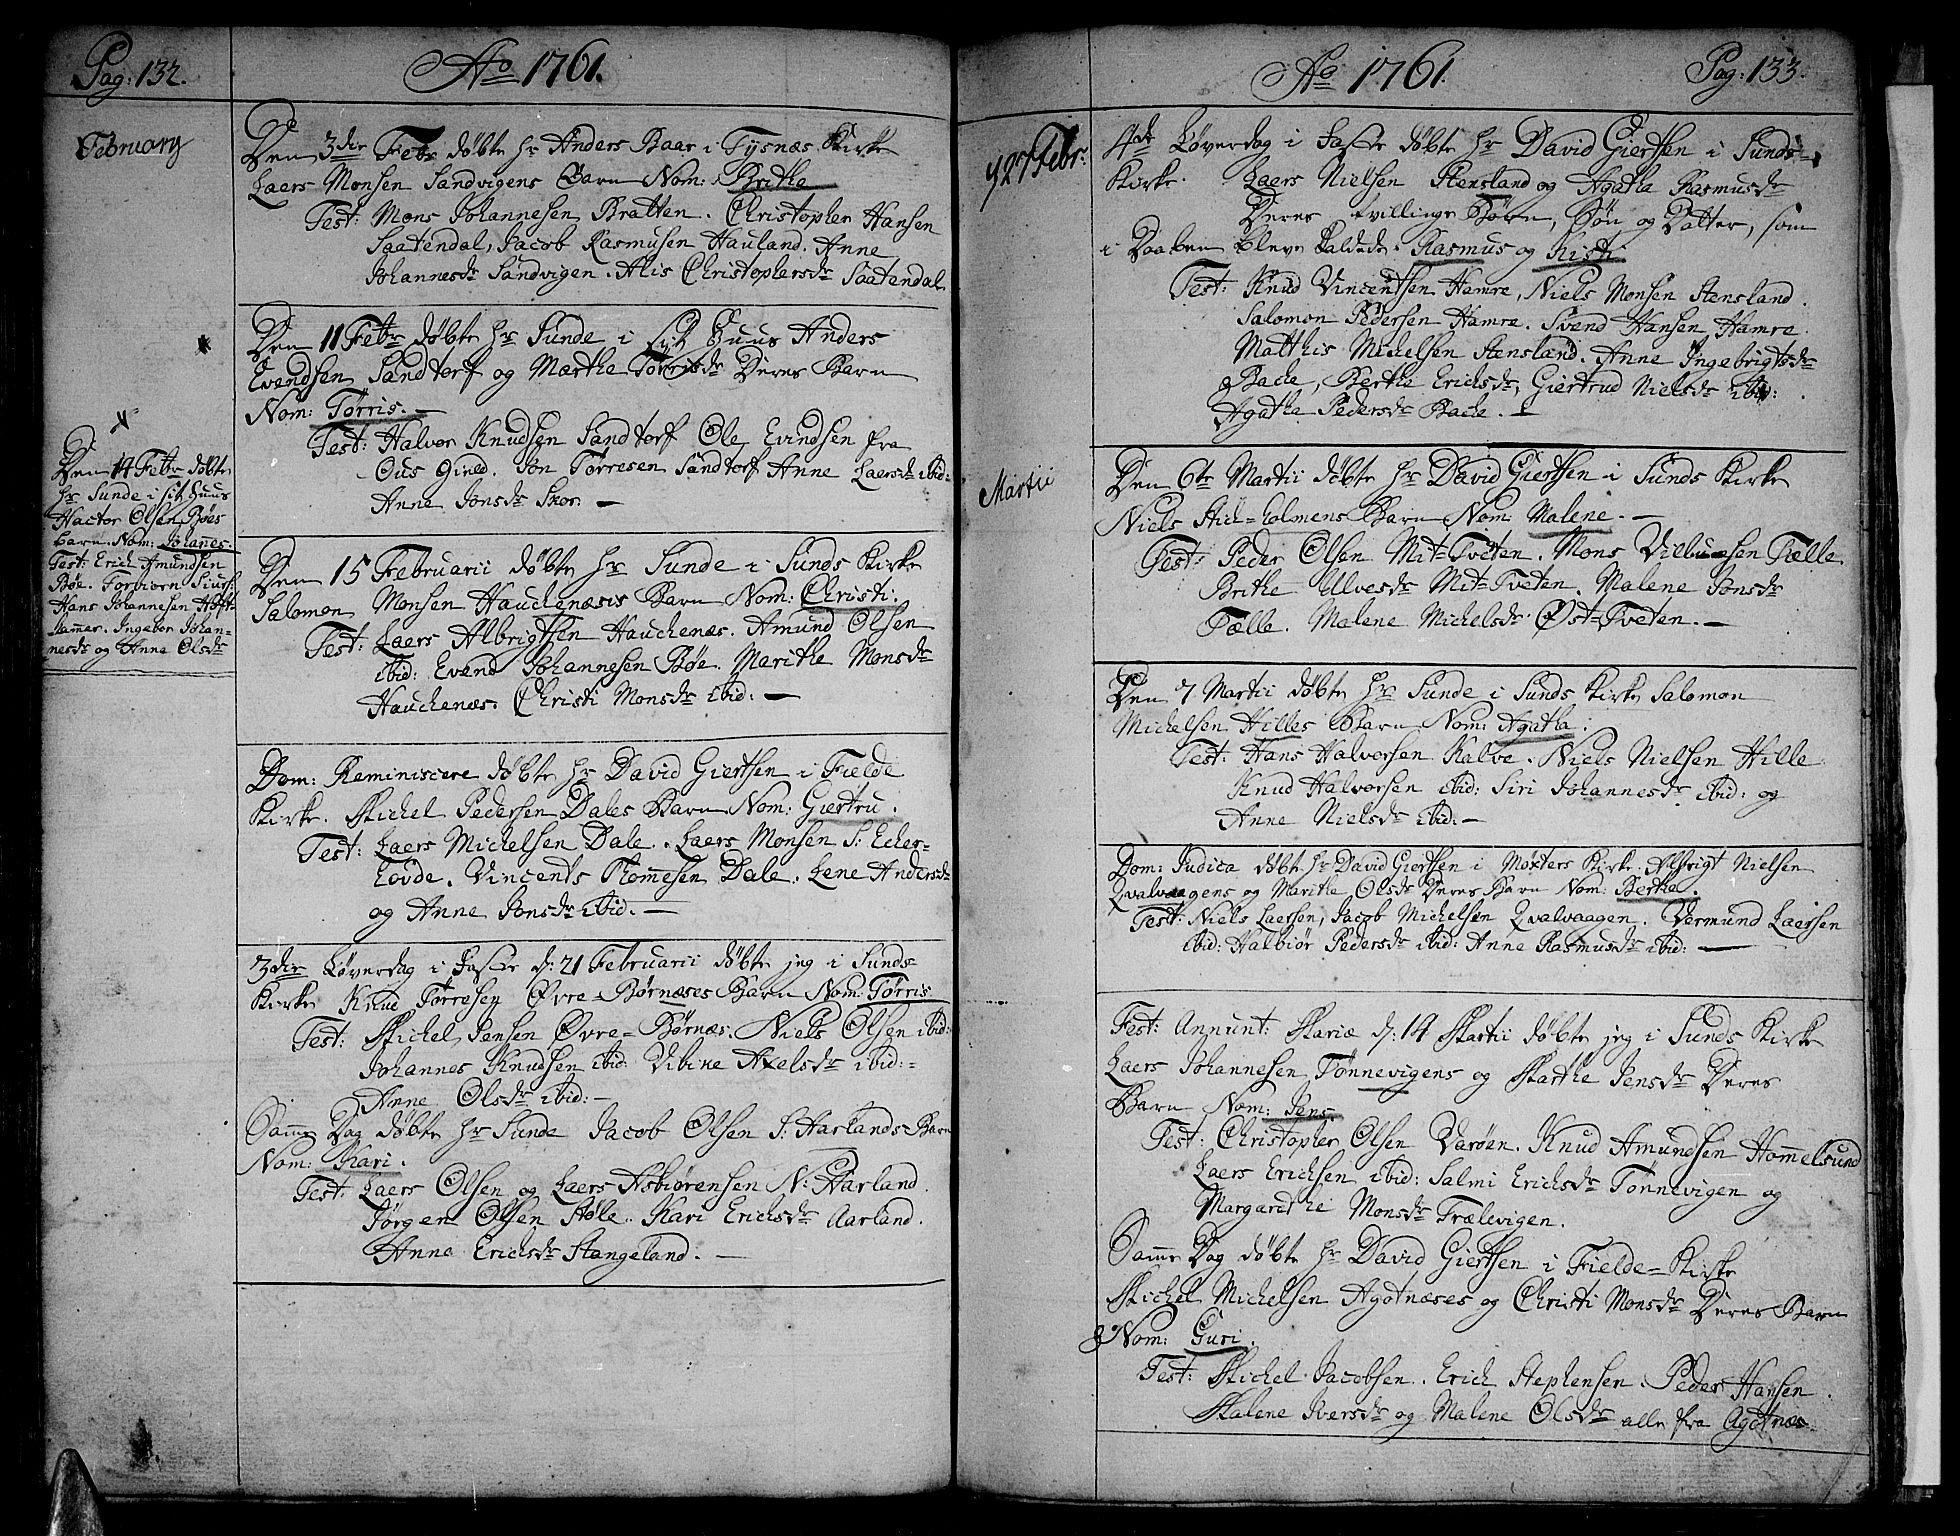 Pag: 132.
Ao 1761.
February
Den 3die Febr døbte Hr Anders Baar i Tysnæs Kirke
Laers Monsen Sandvigens Barn Nom: Brithe
Test: Mons Johannesen Bratten. Christopher Hansen
Saatendal, Jacob Rasmusen Hauland. Anne
Johannesdr Sandvigen. Alis Christophersdr Saatendal
Den 11 Febr døbte Hr Sunde i sit Huus Anders
Evendsen Sandtorf og Marthe Torrisdr Deres Barn
Nom: Tørris. —
Test: Halvor Knudsen Sandtorf Ole Evindsen fra
Ous Gield. Jon Tørresen Sandtorf Anne Laersdr ibid:
Anne Jonsdr Skor. —
Den 14 Febr døbte
Hr Sunde i sit Huus
Hactor Olsen Bøes
Barn. Nom: Johanes.
Test: Erich Amundsen
Bøe. Torbiørn Siurs
Hans Johannesen
Ingebor Johan-
nesdr og Anne Olsdr
Den 15 Februarii døbte Hr Sunde i Sunds Kirke
Salomon Monsen Hauchenæsis Barn Nom: Christi.
Test: Laers Albrigtsen Hauchenæs. Amund Olsen
ibid: Evend Johannesen Bøe. Marithe Monsdr
Hauchenæs. Christi Monsdr ibid: —
Dom: Reminiscere døbte Hr David Giertsen i Fielde
Kirke. Michel Pedersen Dales Barn Nom: Giertru.
Test: Laers Michelsen Dale. Laers Monsen S: Echer-
høvde. Vincents Thomesen Dale. Lene Andersdr
og Anne Jonsdr ibid. —
3die Løverdag i Faste d: 21 Februarii døbte jeg i Sunds
Kirke Knud Tørresen Øvre-Børnæses Barn Nom: Tørris
Test: Michel Jensen Øvre-Børnæs. Niels Olsen ibid:
Johannes Knudsen ibid. Vibike Axelsdr ibid:-
Anne Olsdr ibid: —
Samme Dag døbte Hr Sunde Jacob Olsen S: Harlands Barn
Nom: Kari.
Test: Laers Olsen og Laers Asbiørensen N: Harland.
Jørgen Olsen Høle. Kari Erichsdr Aarland.
Anne Erichsdr Stangeland. —
Ao 1761.
Pag: 133.
Febr:
4de Løverdag i Faste døbte Hr David Giertsen i Sunds-
Kirke. Laers Nielsen Stensland og Agatha Rasmusdr
Deres tvillinge Børn, Søn og Datter, som
i Daaben bleve kaldede. Rasmus og Kisti
Test: Knud Vincentsen Hamre, Niels Monsen Stensland.
Salomon Pedersen Hamre. Svend Hansen Hamre.
Matthis Michelsen Stensland. Anne Ingebrigtsdr
Bache, Berthe Erichsdr, Giertrud Nielsdr ibid:
Agatha Pedersdr Bache. —
Martii
Den 6te Martii døbte Hr David Giertsen i Sunds Kirke
Niels Stich-holmens Barn Nom: Malene. —
Test: Peder Olsen Mit-Tveten. Mons Vilbursen Tælle
Brithe Ulvesdr Mit-Tveten. Malene Jonsdr
Tælle. Malene Michelsdr Øst-Tveten. —
Den 7 Martii døbte Hr Sunde i Sunds Kirke Salomon
Michelsen Hilles Barn Nom: Agatha:
Test: Hans Halvorsen Kalve. Niels Nielsen Hille
Knud Halvorsen ibid: Siri Johannesdr ibid: og
Anne Nielsdr ibid: —
Dom: Judica døbte Hr David Giertsen i Møxters Kirke Albrigt Nielsen
Qvalvaagens og Marithe Olsdr Deres Barn Nom: Berthe.
Test: Niels Laersen, Jacob Michelsen Qvalvaagen. Vermund Laersen
ibid: Halbiør Pedersdr ibid: Anne Rasmusdr ibid: —
Fest: Annunt: Mariæ d: 14 Martii døbte jeg i Sunds Kirke
Laers Johannesen Tønnevigens og Marthe Jensdr Deres
Barn Nom: Jens
Test: Christopher Olsen Varøen. Knud Amundsen Hommelsund
Laers Erichsen ibid: Salmi Erichsdr Tønnevigen og
Margarethe Monsdr Trælevigen.
Samme Dag døbte Hr David Giertsen i Fielde-Kirke
Michel Michelsen Agotnæses og Christi Monsdr Deres Barn
Nom: Guri.
Test: Michel Jacobsen. Erich Stephensen. Peder Hansen.
Malene Iversdr og Malene Olsdr alle fra Agotnæs.